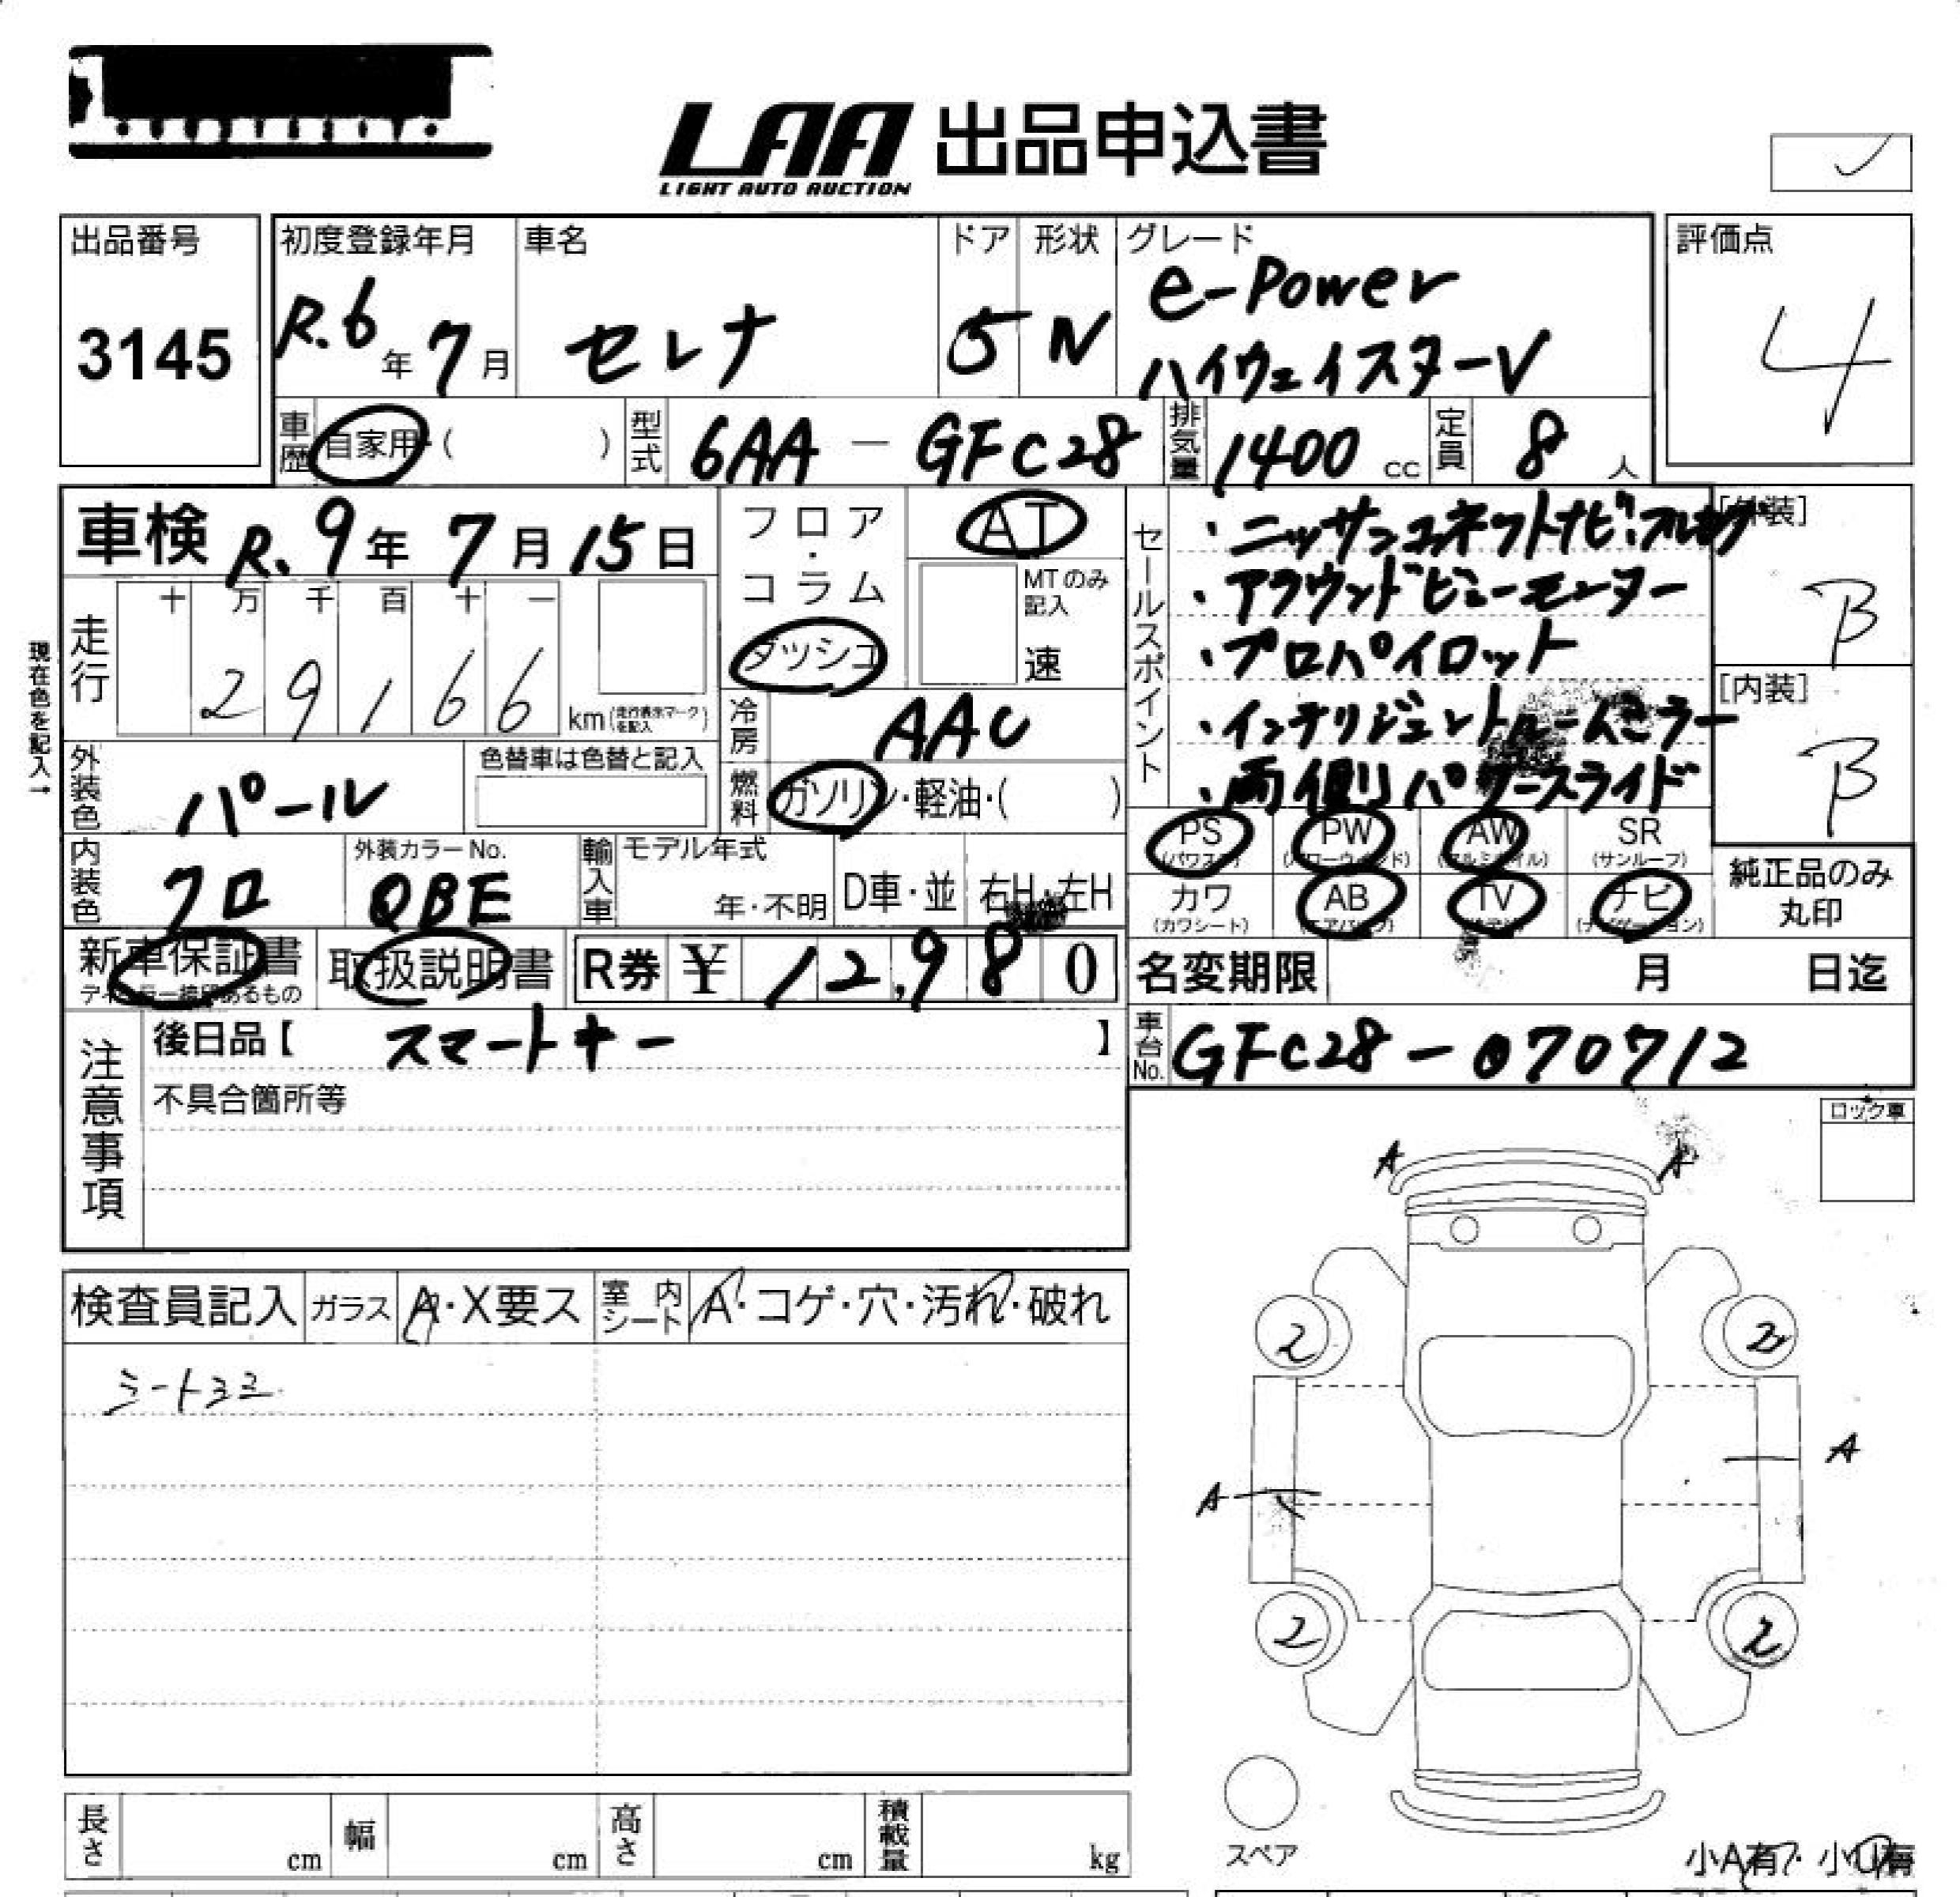 LAA 出品申込書
LIGHT AUTO AUCTION
出品番号
3145
初度登録年月
R.6年7月
車名
セレナ
ドア
5
形状
N
グレード
e-Power
ハイウェイスターV
評価点
4
車歴
自家用・( )
型式
6AA - GFC28
排気量
1400 cc
定員
8 人
車検 R.9年7月15日
現在色を記入→
走行
十 万 千 百 十 一
29166
km(走行表示マークを記入)
フロア・コラム
ダッシュ
AT
MTのみ記入
速
冷房
AAC
燃料
ガソリン・軽油・( )
外装色
パール
色替車は色替と記入
内装色
クロ
外装カラーNo.
QBE
輸入車
モデル年式
年・不明
D車・並
右H・左H
セールスポイント
・ニッサンコネクトナビ・フルセグ
・アラウンドビューモニター
・プロパイロット
・インテリジェントルームミラー
・両側パワースライド
[外装]
B
[内装]
B
PS (パワステ)
PW (パワーウインド)
AW (アルミホイル)
SR (サンルーフ)
カワ (カワシート)
AB (エアバッグ)
TV
ナビ (ナビゲーション)
純正品のみ丸印
新車保証書
ディーラー捺印あるもの
取扱説明書
R券 ¥ 12,980
名変期限 月 日迄
注意事項
後日品【 スマートキー 】
不具合箇所等
車台No.
GFC28-070712
ロック車
検査員記入
ガラス
A・X要ス
室内シート
A・コゲ・穴・汚れ・破れ
シートヨゴ
A A
2 2
A
A
2 2
スペア
小A有・小U有
長さ cm
幅 cm
高さ cm
積載量 kg